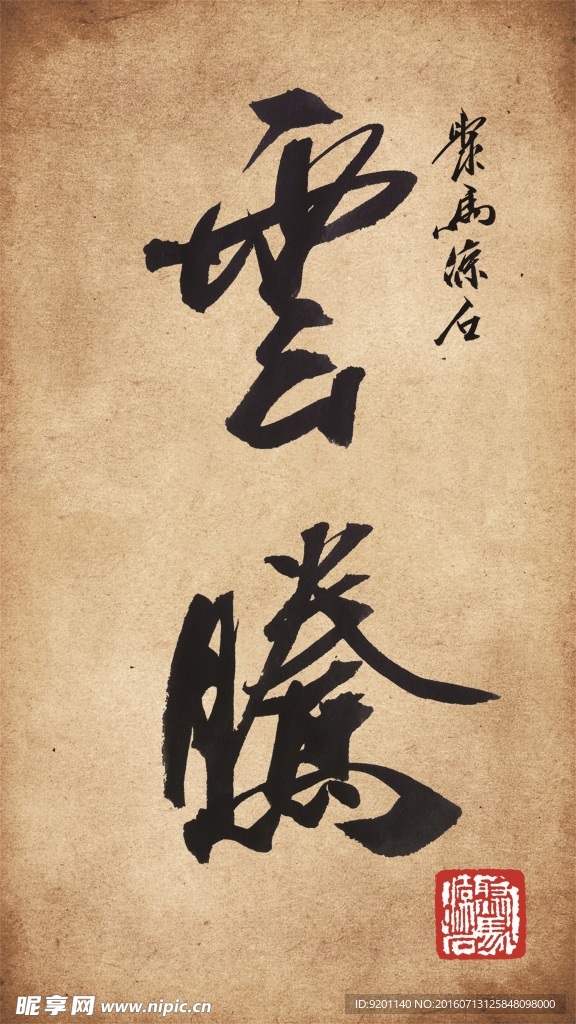 雲
騰
馬
石
昵享网 www.nipic.cn
ID:9201140 NO:20160713125848098000